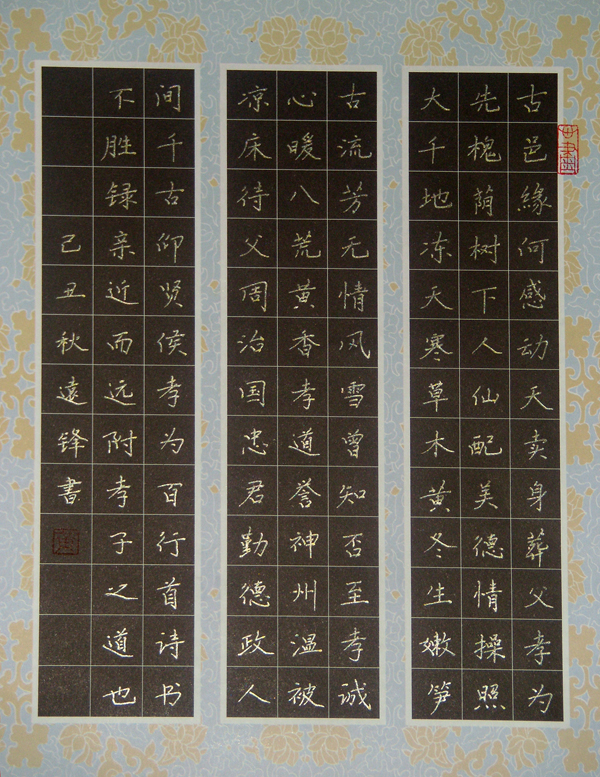 古邑緣何感动天卖身葬父孝为
先槐荫树下人仙配美德情操照
大千地冻天寒草木黄冬生嫩笋
古流芳无情风雪曾知否至孝诚
心暖八荒黄香孝道誉神州温被
凉床待父周治国忠君勤德政人
间千古仰贤侯孝为百行首诗书
不胜録亲近而远附孝子之道也
己丑秋遠锋書